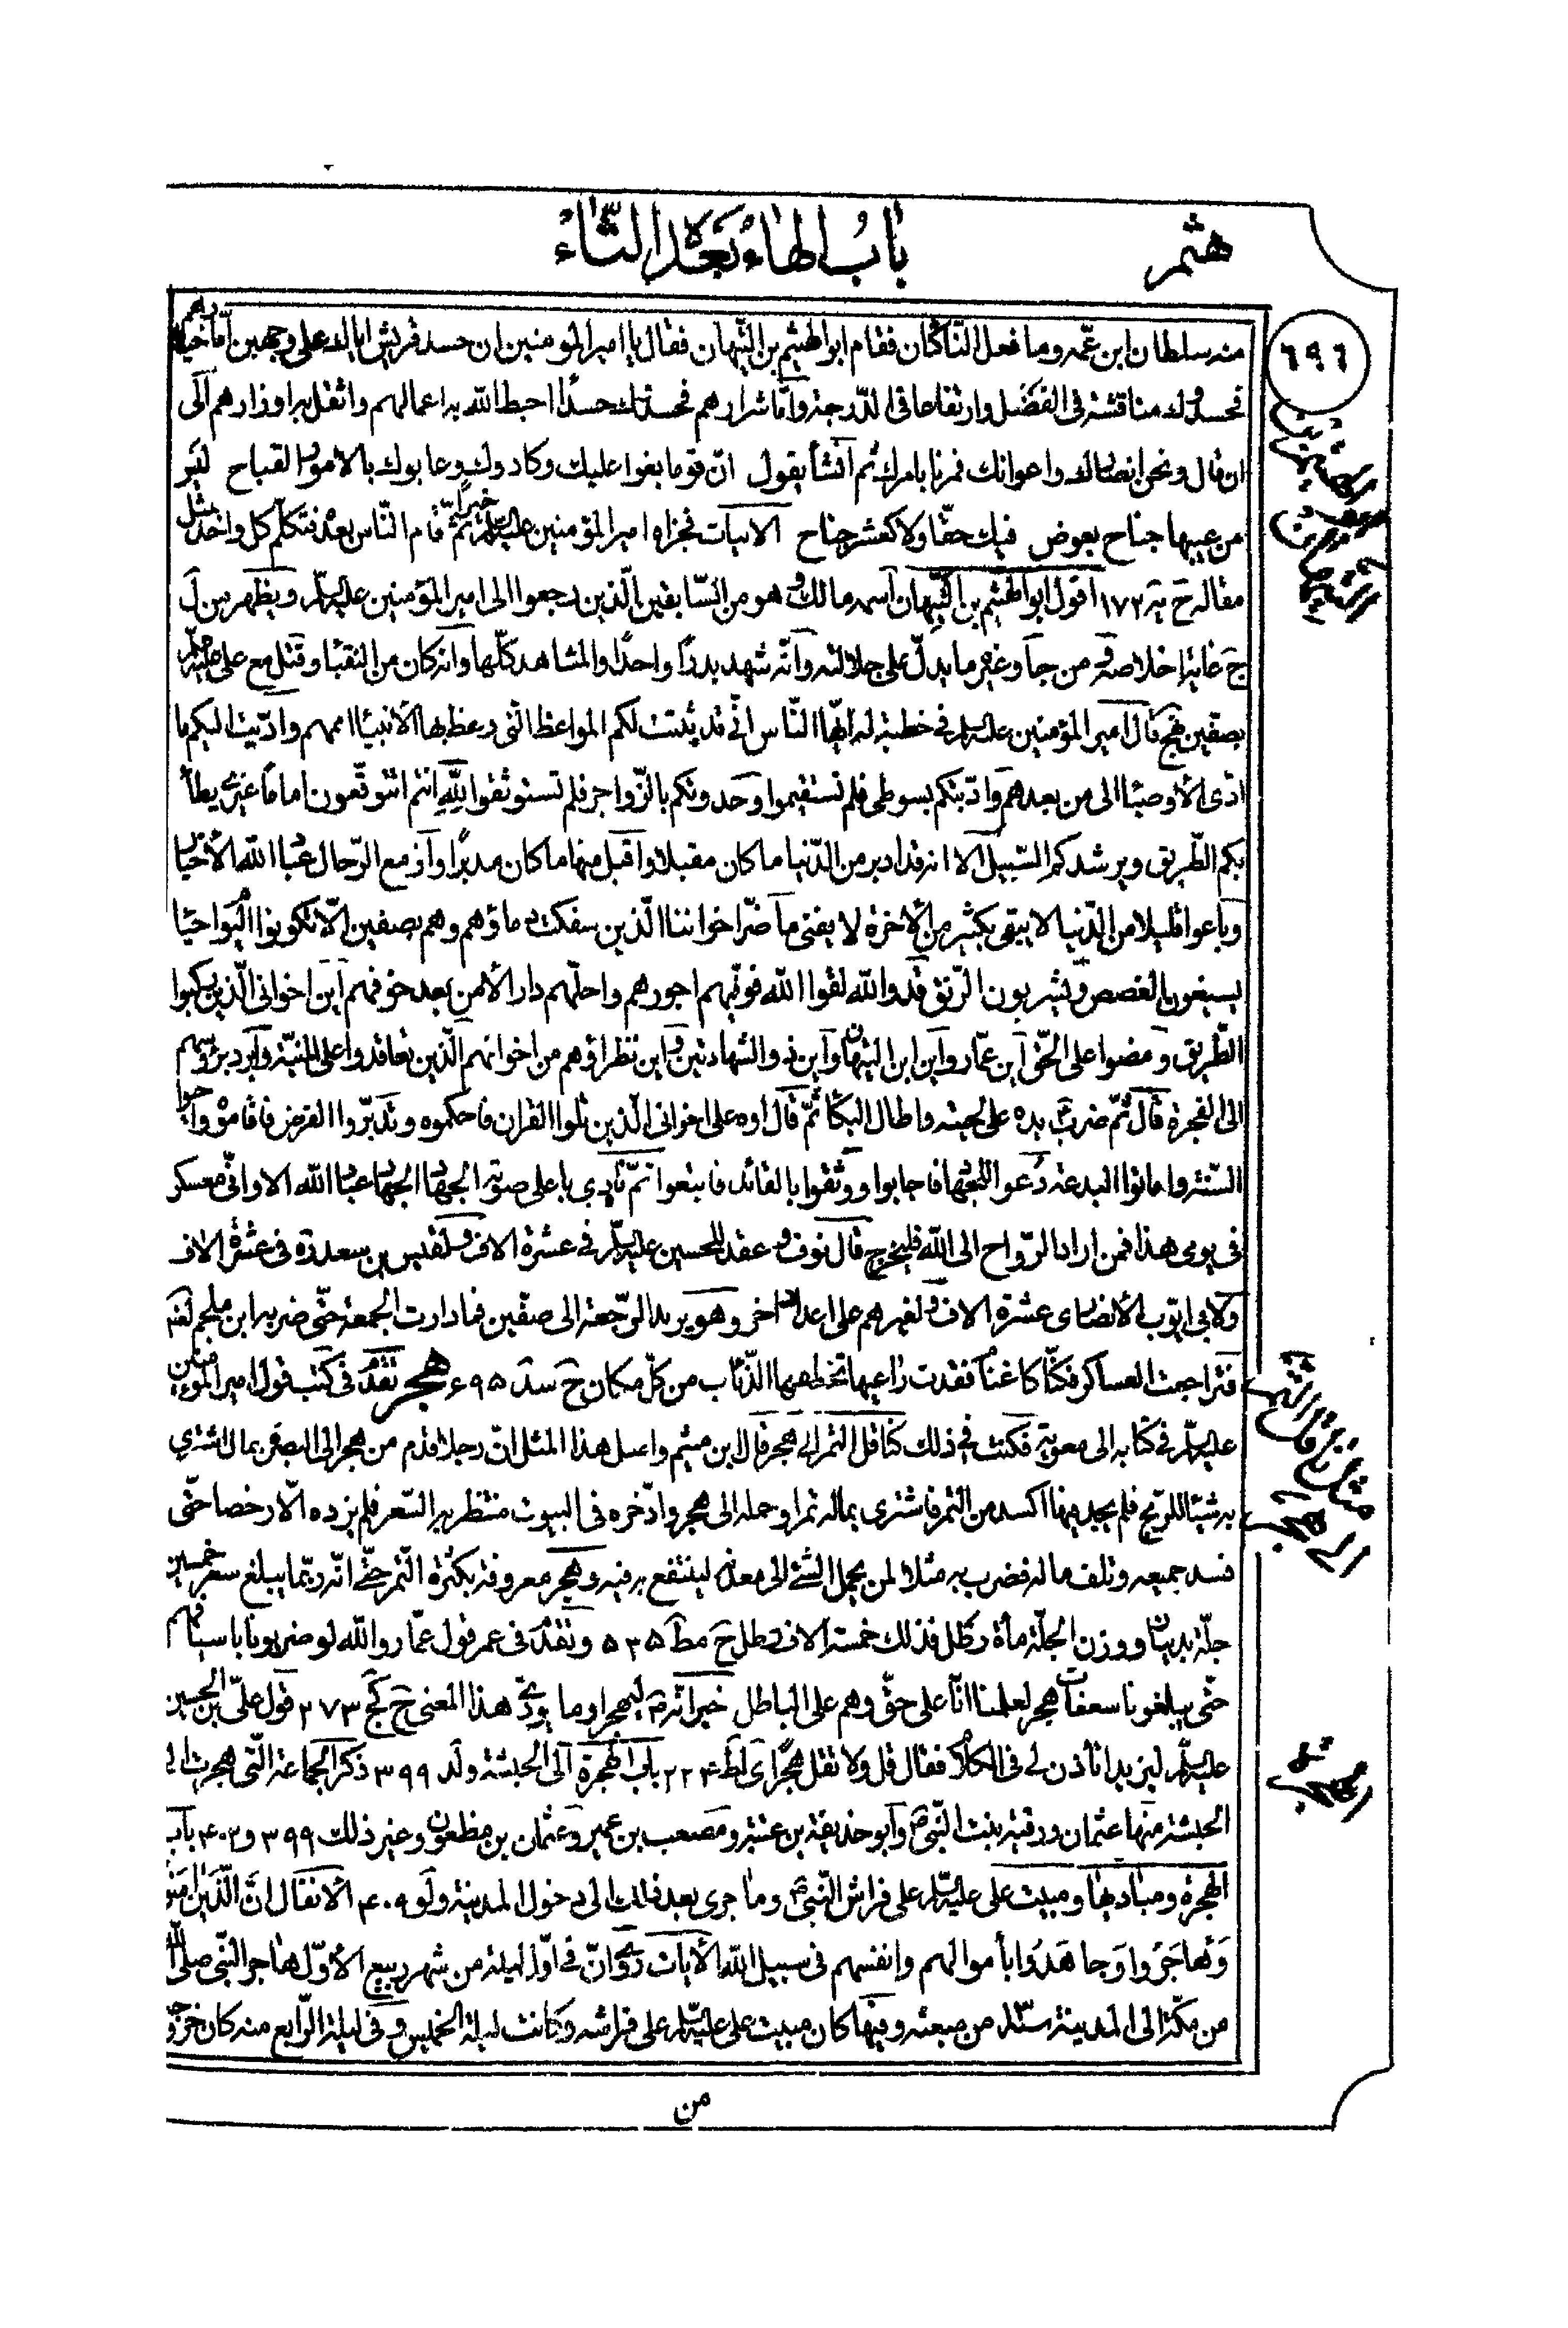 هثم
باب الهاء بعده الثاء
٦٩٦
منه سلطان ابن عمه وما فعل الناكثان فقام ابو الهيثم بن التيهان فقال يا امير المؤمنين ان حسد قريش اياك على وجهين اما خيارهم
فحسدوك منافسة فى الفضل وارتفاعا فى الدرجة واما شرارهم فحسدتك حسدا احبط الله به اعمالهم واثقل به اوزارهم الى
ان قال ونحن انصارك واعوانك فمرنا بامرك ثم انشأ يقول ان قوما بغوا عليك وكادوك وعابوك بالامور القباح ليس
من عيبها جناح بعوض فيك حقا ولا كعشر جناح الابيات فجزاه امير المؤمنين عليه السلم خيرا ثم قام الناس بعده فتكلم كل واحد مثل
مقاله ح ية ١٧٢ اقول ابو الهيثم بن التيهان اسمه مالك وهو من السابقين الذين رجعوا الى امير المؤمنين عليه السلم ويظهر من ل
ج غاية اخلاصه و من جا وغيره ما يدل على جلالته وانه شهد بدرا واحدا والمشاهد كلها وانه كان من النقباء وقتل مع على عليه السلم
بصفين نهج قال امير المؤمنين عليه السلم فى خطبة له ايها الناس انى قد بثثت لكم المواعظ التى وعظ بها الانبياء اممهم واديت اليكم ما
ادى الاوصياء الى من بعدهم وادبتكم بسوطى فلم تستقيموا وحدوتكم بالزواجر فلم تستوثقوا لله انتم اتتوقعون اماما غيرى يطأ
بكم الطريق ويرشدكم السبيل الا انه قد ادبر من الدنيا ما كان مقبلا واقبل منها ما كان مدبرا وازمع الترحال عباد الله الاخيار
وباعوا قليلا من الدنيا لا يبقى بكثير من الاخرة لا يفنى ما ضر اخواننا الذين سفكت دماؤهم وهم بصفين الا يكونوا اليوم احياء
يسيغون الغصص ويشربون الرنق قد والله لقوا الله فوفيهم اجورهم واحلهم دار الامن بعد خوفهم اين اخوانى الذين ركبوا
الطريق ومضوا على الحق اين عمار واين ابن التيهان واين ذو الشهادتين واين نظراؤهم من اخوانهم الذين تعاقدوا على المنية وابرد برؤسهم
الى الفجرة قال ثم ضرب يده على لحيته واطال البكاء ثم قال اوه على اخوانى الذين تلوا القران فاحكموه وتدبروا الفرض فاقاموه واحيوا
السنة واماتوا البدعة دعوا للجهاد فاجابوا ووثقوا بالقائد فاتبعوا ثم نادى باعلى صوته الجهاد الجهاد عباد الله الا وانى معسكر
فى يومى هذا فمن اراد الرواح الى الله فليخرج قال نوف وعقد للحسين عليه السلم فى عشرة الاف ولقيس بن سعد ره فى عشرة الاف
ولابى ايوب الانصارى عشرة الاف ولغيرهم على اعداد اخر وهو يريد الرجعة الى صفين فما دارت الجمعة حتى ضربه ابن ملجم لعنه
فتراجعت العساكر فكنا كاغنام فقدت راعيها تختطفها الذئاب من كل مكان ح سد ٦٩٥ هجر تقدم فى كتب قول امير المؤمنين
عليه السلم فى كتابه الى معوية فكنت فى ذلك كناقل التمر الى هجر قال ابن ميثم واصل هذا المثل ان رجلا قدم من هجر الى البصرة بمال اشترى
به شيئا للربح فلم يجد فيها اكسد من التمر فاشترى بماله تمرا وحمله الى هجر وادخره فى البيوت منتظر به السعر فلم يزده الا رخصا حتى
فسد جميعه وتلف ماله فضرب به مثلا لمن يحمل الشئ الى معدنه لينتفع به فيه وهجر معروفة بكثرة التمر حتى انه ربما يبلغ سعر خمسين
جلة بدينار ووزن الجلة مأة رطل فذلك خمسة الاف رطل ح مط ٥٣٥ وتقدم فى عمر قول عمار والله لو ضربونا باسيافهم
حتى يبلغونا سعفات هجر لعلمنا انا على حق وهم على الباطل خبر انه م ليهجر وما يؤدى هذا المعنى ح كج ٢٧٣ قول على بن الحسين
عليه السلم ليزيد اتأذن لى فى الكلام فقال قل ولا تقل هجرا ى لط ٢٢٤ باب الهجرة الى الحبشة و لد ٣٩٩ ذكر الجماعة التى هجرت الى
الحبشة منها عثمان ورقية بنت النبى ص وابو حذيفة بن عتبة ومصعب بن عمير وعثمان بن مظعون وغير ذلك ٣٩٩ و ٤٠٣ باب
الهجرة ومباديها ومبيت على عليه السلم على فراش النبى ص وما جرى بعد ذلك الى دخول المدينة و لو ٤٠٩ الانفال ان الذين امنوا
وهاجروا وجاهدوا بأموالهم وانفسهم فى سبيل الله الايات روى ان فى اول ليلة من شهر ربيع الاول هاجر النبى صلى الله
من مكة الى المدينة سنة من مبعثه وفيها كان مبيت على عليه السلم على فراشه وكانت ليلة الخميس وفى ليلة الرابع منه كان خروجه
مثل ناقل التمر
الى هجر
الهجرة
من